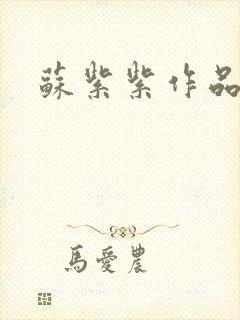 蘇紫紫作品
馬愛農